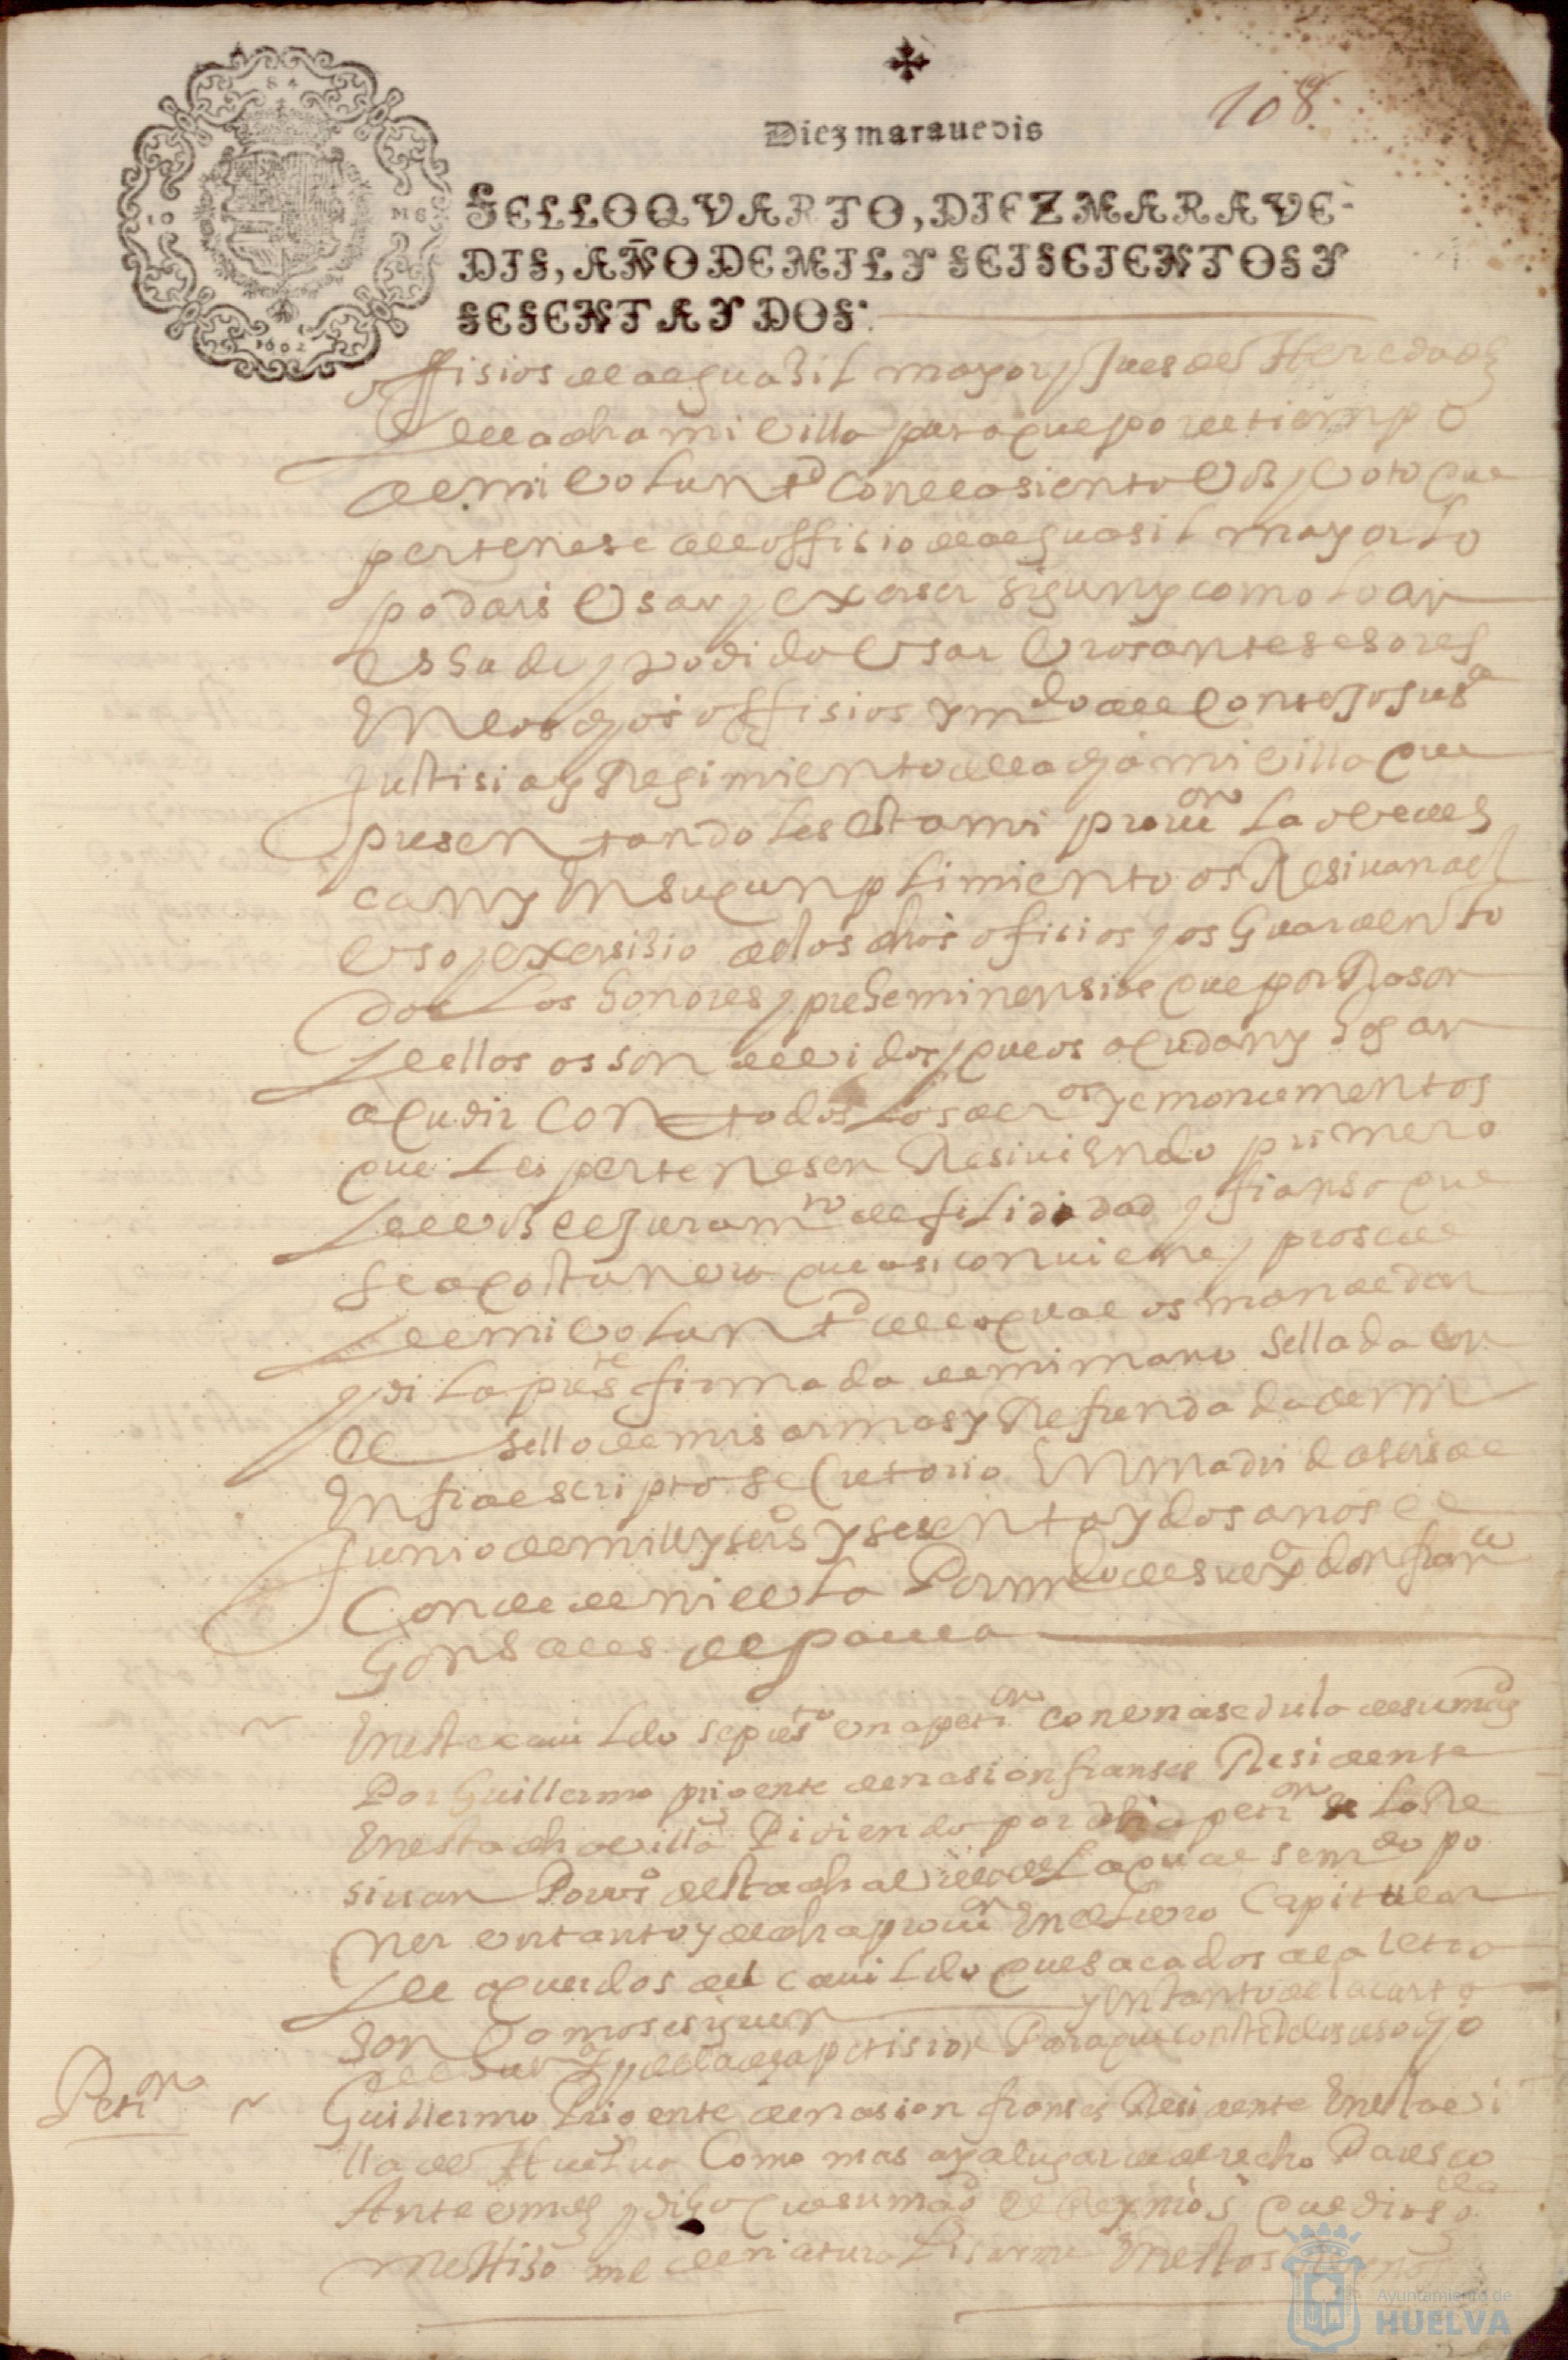 108
Diez marauedis
SELLO QVARTO, DIEZ MARAVE-
DIS, AÑO DE MIL Y SEISCIENTOS Y
SESENTA Y DOS.
1662
offisios de alguasil mayor y Jues de Heredades
de la dha mi villa para que por el tiempo
de mi voluntd con el asiento Vos y Voto que
pertenese al offisio de alguasil mayor lo
podais Usar y exerser sigun y como lo an
Usado y podido Usar Vros antesesores
En los dhos offisios y mdo al Consejo Jusa
Justisia y Regimiento de la dha mi villa que
presentandoles esta mi prouon la obedes
can y En su cunplimiento os Resiuan al
Uso y exersisio de los dhos ofisios y os Guarden to
dos Los honores y preheminensias que por Rason
de ellos os son deuidos y que os acudan y hagan
acudir con todos Los deros y emonumentos
que les pertenesen Resiuiendo primero
de Vos el Juramto de filididad y fiansa que
se acostunbra que asi conuiene y prosede
de mi voluntd de lo qual os mande dar
y di la preste firmada de mi mano Sellada con
el sello de mis armas y Refrendada de mi
Infraescripto secretario En Madrid a seis de
Junio de mill y seisos y sesenta y dos años el
Conde de niebla Por mdo de su exa don franco
Gonsales de
En este cauildo se presto una petion con una sedula de su magd
Por Guillermo prigente de nasion franses Residente
En esta dha villa Pidiendo por dha petion se la Re
siuan Por vso desta dha villa de La qual se mdo po
ner un tanto y de dha prouon En el Libro Capitular
de acuerdos del cauildo que sacados a la letra
son Como se siguen y un tanto de la carta
de su exa y de la dha petision Para que conste del uso dho
Petion
Guillermo Prigente de nasion franses Residente En esta vi
lla de Huelua Como mas aya lugar de derecho Paresco
Ante vmd y digo que su magd el Rey nro sr que dios gde
me hiso md de naturalisarme En estos
Ayuntamiento de
HUELVA